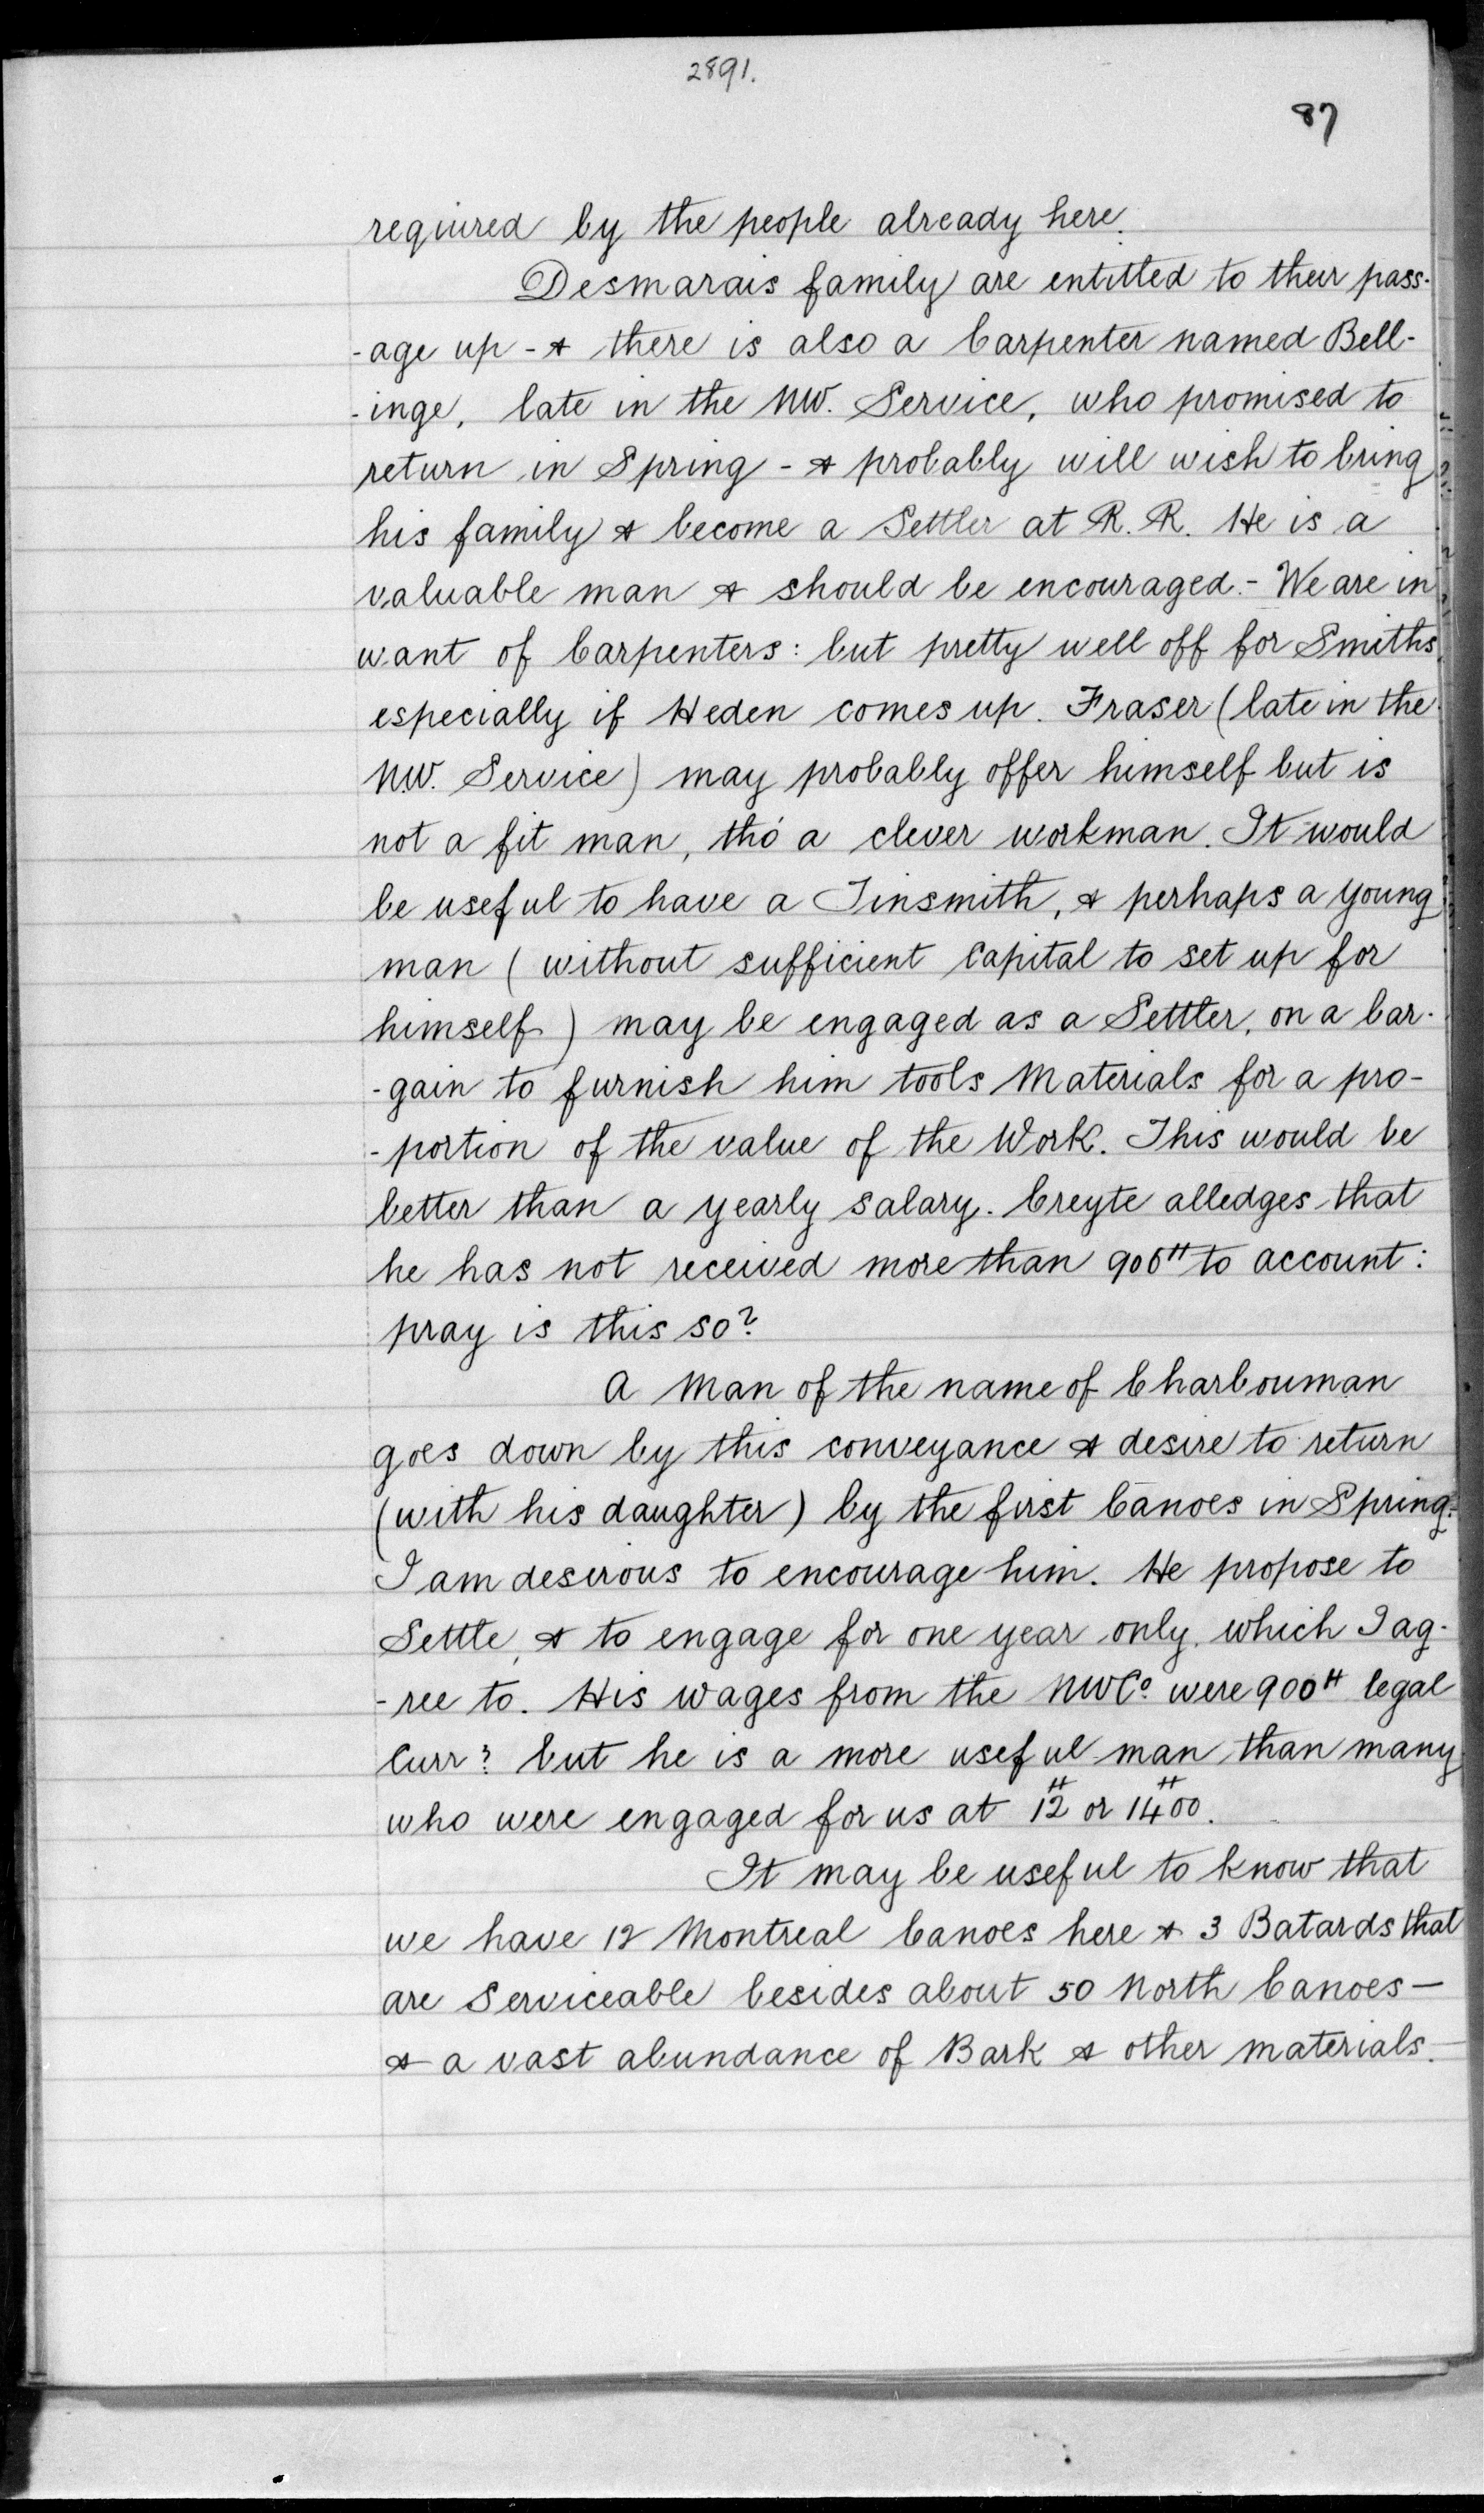 2891.
87
required by the people already here.
Desmarais family are entitled to their pass-
-age up - & there is also a Carpenter named Bell-
-inge, late in the NW. Service, who promised to
return in Spring - & probably will wish to bring
his family & become a Settler at R. R. He is a
valuable man & should be encouraged. - We are in
want of Carpenters: but pretty well off for Smiths
especially if Heden comes up. Fraser (late in the
N.W. Service) may probably offer himself but is
not a fit man, tho' a clever workman. It would
be useful to have a Tinsmith, & perhaps a young
man (without sufficient Capital to set up for
himself) may be engaged as a Settler, on a bar-
-gain to furnish him tools Materials for a pro-
-portion of the value of the Work. This would be
better than a yearly salary. Creyte alledges that
he has not received more than 900# to account:
pray is this so?
A Man of the name of Charbouman
goes down by this conveyance & desire to return
(with his daughter) by the first Canoes in Spring.
I am desirous to encourage him. He propose to
Settle, & to engage for one year only, which I ag-
-ree to. His wages from the NWCo were 900# legal
Curry: but he is a more useful man than many
who were engaged for us at 12# or 1400#.
It may be useful to know that
we have 12 Montreal Canoes here & 3 Batards that
are Serviceable besides about 50 North Canoes—
& a vast abundance of Bark & other materials.—